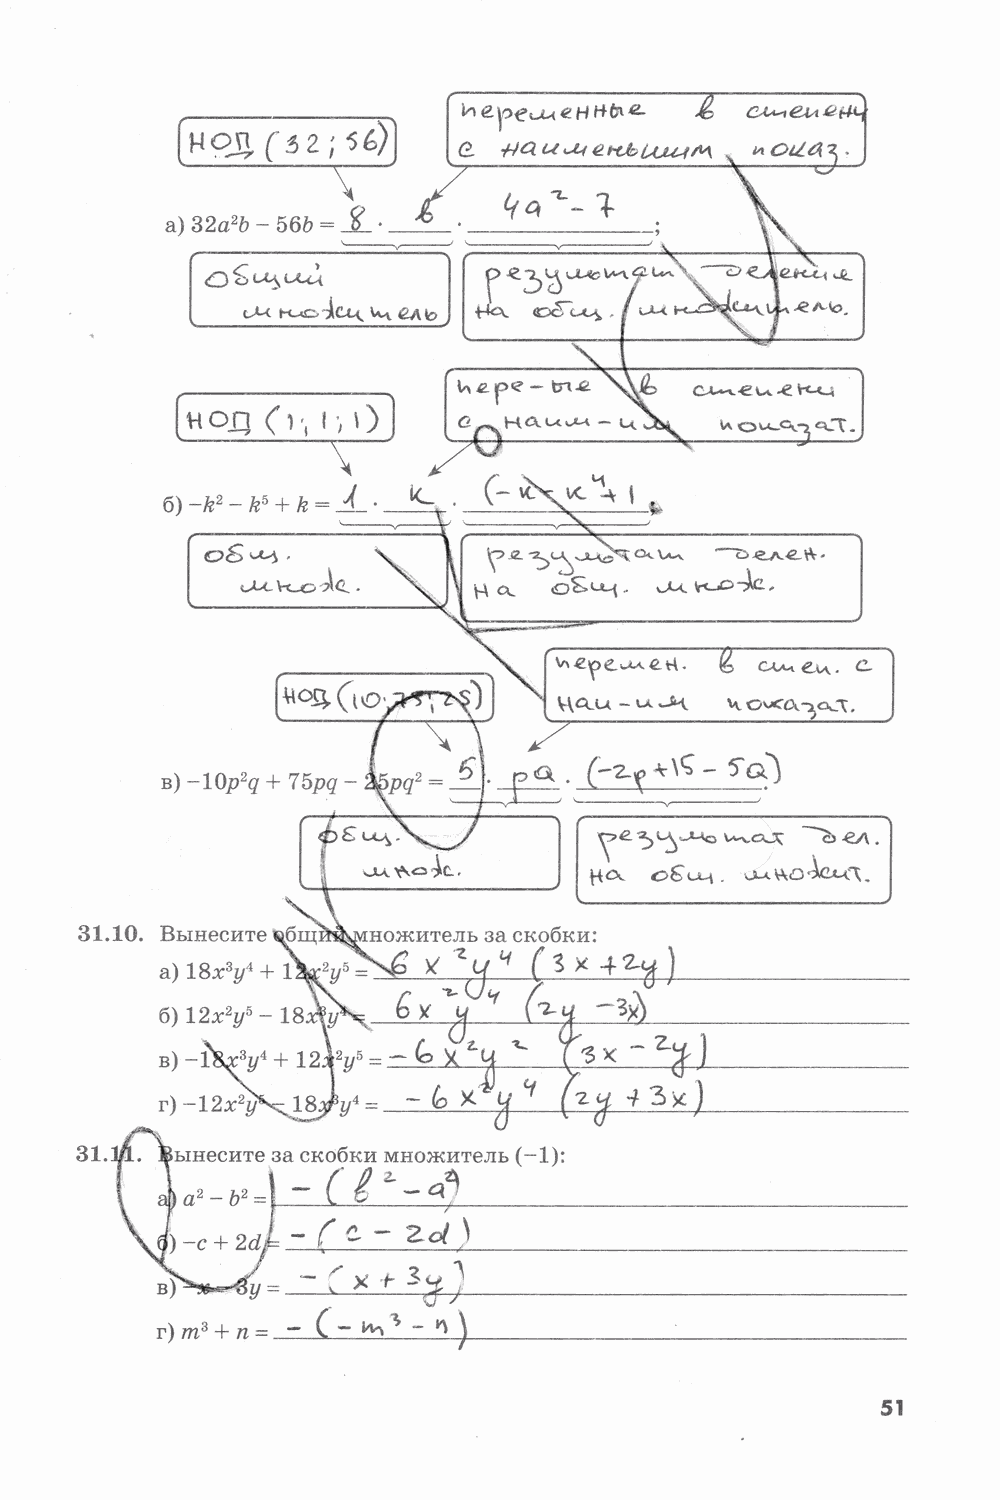 переменные в степени
НОД (32; 56) с наименьшим показ.
а) 32a²b − 56b = 8 · b · 4a² − 7 ;
общий результат деления
множитель на общ. множитель.
пере-ые в степени
НОД (1; 1; 1) с наим-им показат.
б) −k² − k⁵ + k = 1 · k · (−k − k⁴ + 1 ;
общ. результат делен.
множ. на общ. множ.
перемен. в степ. с
НОД (10; 75; 25) наи-им показат.
в) −10p²q + 75pq − 25pq² = 5 · pq · (−2p + 15 − 5q) .
общ. результат дел.
множ. на общ. множит.
31.10. Вынесите общий множитель за скобки:
а) 18x³y⁴ + 12x²y⁵ = 6x²y⁴ (3x + 2y)
б) 12x²y⁵ − 18x³y⁴ = 6x²y⁴ (2y − 3x)
в) −18x³y⁴ + 12x²y⁵ = −6x²y² (3x − 2y)
г) −12x²y⁵ − 18x³y⁴ = −6x²y⁴ (2y + 3x)
31.11. Вынесите за скобки множитель (−1):
а) a² − b² = − (b² − a²)
б) −c + 2d = − (c − 2d)
в) −x − 3y = − (x + 3y)
г) m³ + n = − (−m³ − n)
51